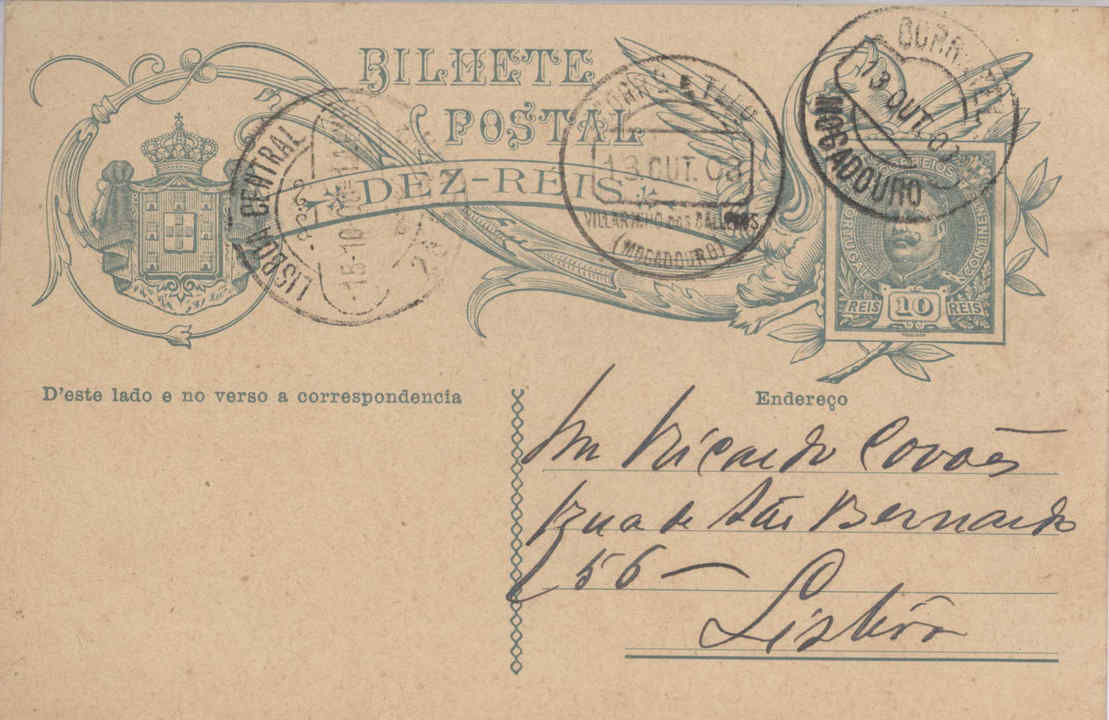 BILHETE
POSTAL
DEZ-RÉIS
LISBOA CENTRAL
15-10
CORRº E TELº
13 OUT. 03
VILLARINHO DOS GALLEGOS
(MOGADOURO)
13 OUT. 03
MOGADOURO
CORREIOS
PORTUGAL
CONTINENTE
REIS 10 REIS
D'este lado e no verso a correspondencia
Endereço
Ricardo Covões
Rua de São Bernardo
56 —
Lisbôa